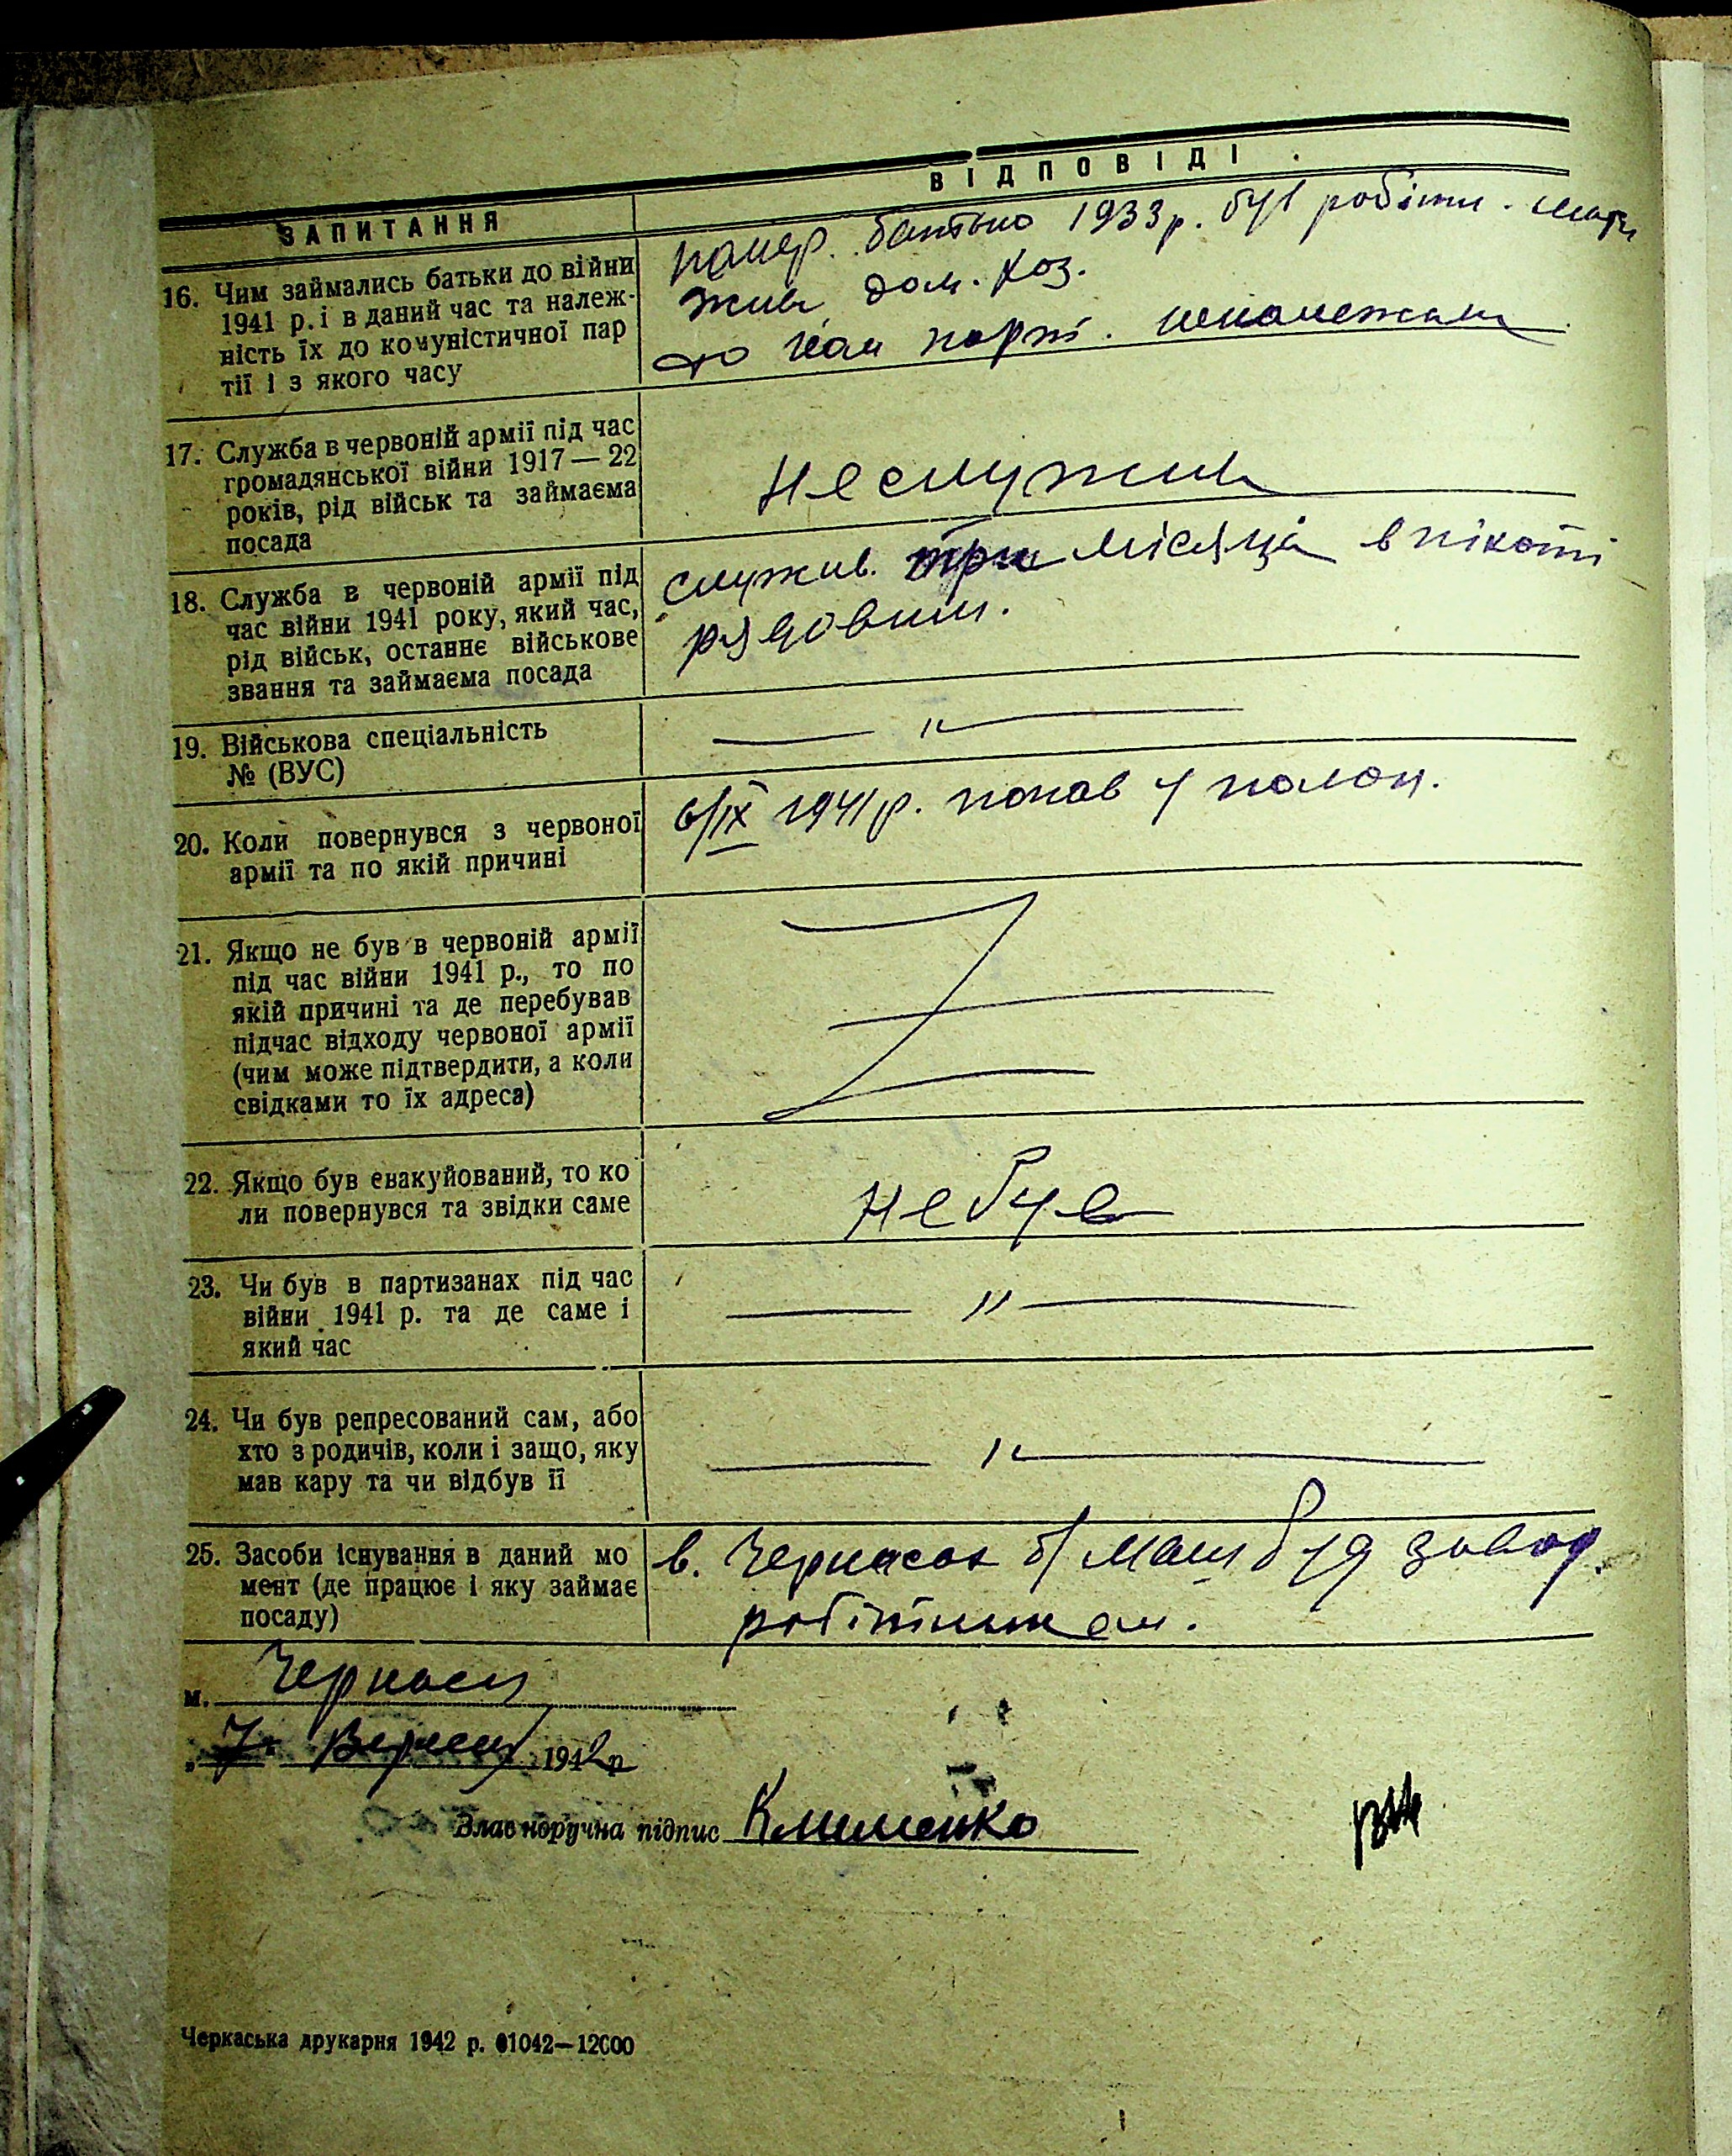 ЗАПИТАННЯ
ВІДПОВІДІ.
16. Чим займались батьки до війни
1941 р. і в даний час та належ-
ність їх до комуністичної пар
тії і з якого часу
помер. батько 1933 р. був робітн. мати
жив дом. хоз.
до ком парті. неналежали
17. Служба в червоній армії під час
громадянської війни 1917 — 22
років, рід військ та займаєма
посада
Неслужив
18. Служба в червоній армії під
час війни 1941 року, який час,
рід військ, останнє військове
звання та займаєма посада
служив. три місяца в піхоті
рядовим.
19. Військова спеціальність
№ (ВУС)
— " —
20. Коли повернувся з червоної
армії та по якій причині
6/IX 1941 р. попав у полон.
21. Якщо не був в червоній армії
під час війни 1941 р., то по
якій причині та де перебував
підчас відходу червоної армії
(чим може підтвердити, а коли
свідками то їх адреса)
22. Якщо був евакуйований, то ко
ли повернувся та звідки саме
Не був
23. Чи був в партизанах під час
війни 1941 р. та де саме і
який час
— " —
24. Чи був репресований сам, або
хто з родичів, коли і защо, яку
мав кару та чи відбув її
— " —
25. Засоби існування в даний мо
мент (де працює і яку займає
посаду)
в. Черкасах б/ Маш буд завод.
робітником.
м. Черкаси
„7" Вересня 1942 р
Власноручна підпис Клименко
Черкаська друкарня 1942 р. 01042—12000